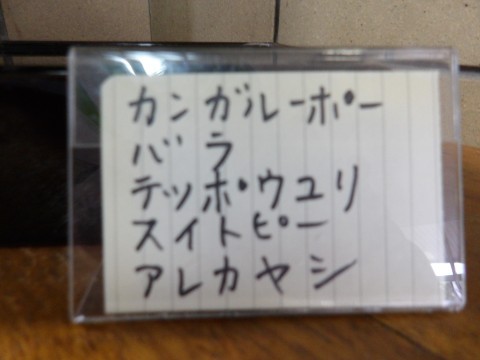 カンガルーポー
バラ
テッポウユリ
スイトピー
アレカヤシ